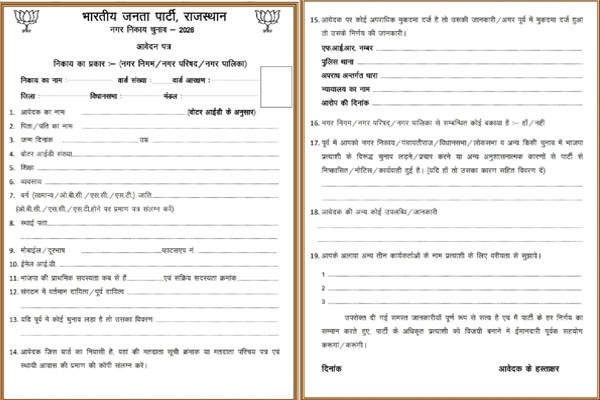 भारतीय जनता पार्टी, राजस्थान
नगर निकाय चुनाव – 2026
आवेदन पत्र
निकाय का प्रकार :– (नगर निगम/नगर परिषद/नगर पालिका)
निकाय का नाम वार्ड संख्या वार्ड आरक्षण :
जिला : विधानसभा : मंडल :
1. आवेदक का नाम (वोटर आईडी के अनुसार)
2. पिता/पति का नाम
3. जन्म दिनांक उम्र
4. वोटर आईडी संख्या
5. शिक्षा
6. व्यवसाय
7. वर्ग (सामान्य/ओ.बी.सी./एस.सी./एस.टी.) जाति
(ओ.बी.सी./एस.सी./एस.टी.होने पर प्रमाण पत्र संलग्न करें)
8. स्थाई पता
9. मोबाईल/दूरभाष व्हाटसएप नं.
10. ईमेल आई.डी.
11. भाजपा की प्राथमिक सदस्यता कब से है एवं सक्रिय सदस्यता क्रमांक
12. संगठन में वर्तमान दायित्व/पूर्व दायित्व
13. यदि पूर्व में कोई चुनाव लड़ा है तो उसका विवरण
14. आवेदक जिस वार्ड का निवासी है, यहां की मतदाता सूची क्रमांक या मतदाता परिचय पत्र एवं
स्थायी आवास की प्रमाण की कॉपी संलग्न करें।
15. आवेदक पर कोई अपराधिक मुकदमा दर्ज है तो उसकी जानकारी/अगर पूर्व में मुकदमा दर्ज हुआ
तो उसके निर्णय की जानकारी।
एफ.आई.आर. नम्बर
पुलिस थाना
अपराध अन्तर्गत धारा
न्यायालय का नाम
आरोप की दिनांक
16. नगर निगम/नगर परिषद्/नगर पालिका से सम्बन्धित कोई बकाया है :– हॉं/नहीं
17. पूर्व में आपको नगर निकाय/पंचायतीराज/विधानसभा/लोकसभा व अन्य किसी चुनाव में भाजपा
प्रत्याशी के विरुद्ध चुनाव लड़ने/प्रचार करने या अन्य अनुशासनात्मक कारणों से पार्टी से
निष्कासित/नोटिस/कार्यवाही हुई है। (यदि हाँ तो उसका कारण सहित विवरण दें)
18. आवेदक की अन्य कोई उपलब्धि/जानकारी
19. आपके अलावा अन्य तीन कार्यकर्ताओं के नाम प्रत्याशी के लिए वरीयता से सुझावे।
1
2
3
उपरोक्त दी गई समस्त जानकारीयॉं पूर्ण रूप से सत्य है एवं मैं पार्टी के हर निर्णय का
सम्मान करते हुए, पार्टी के अधिकृत प्रत्याशी को विजयी बनाने में ईमानदारी पूर्वक सहयोग
करूंगा/करूंगी।
दिनांक आवेदक के हस्ताक्षर